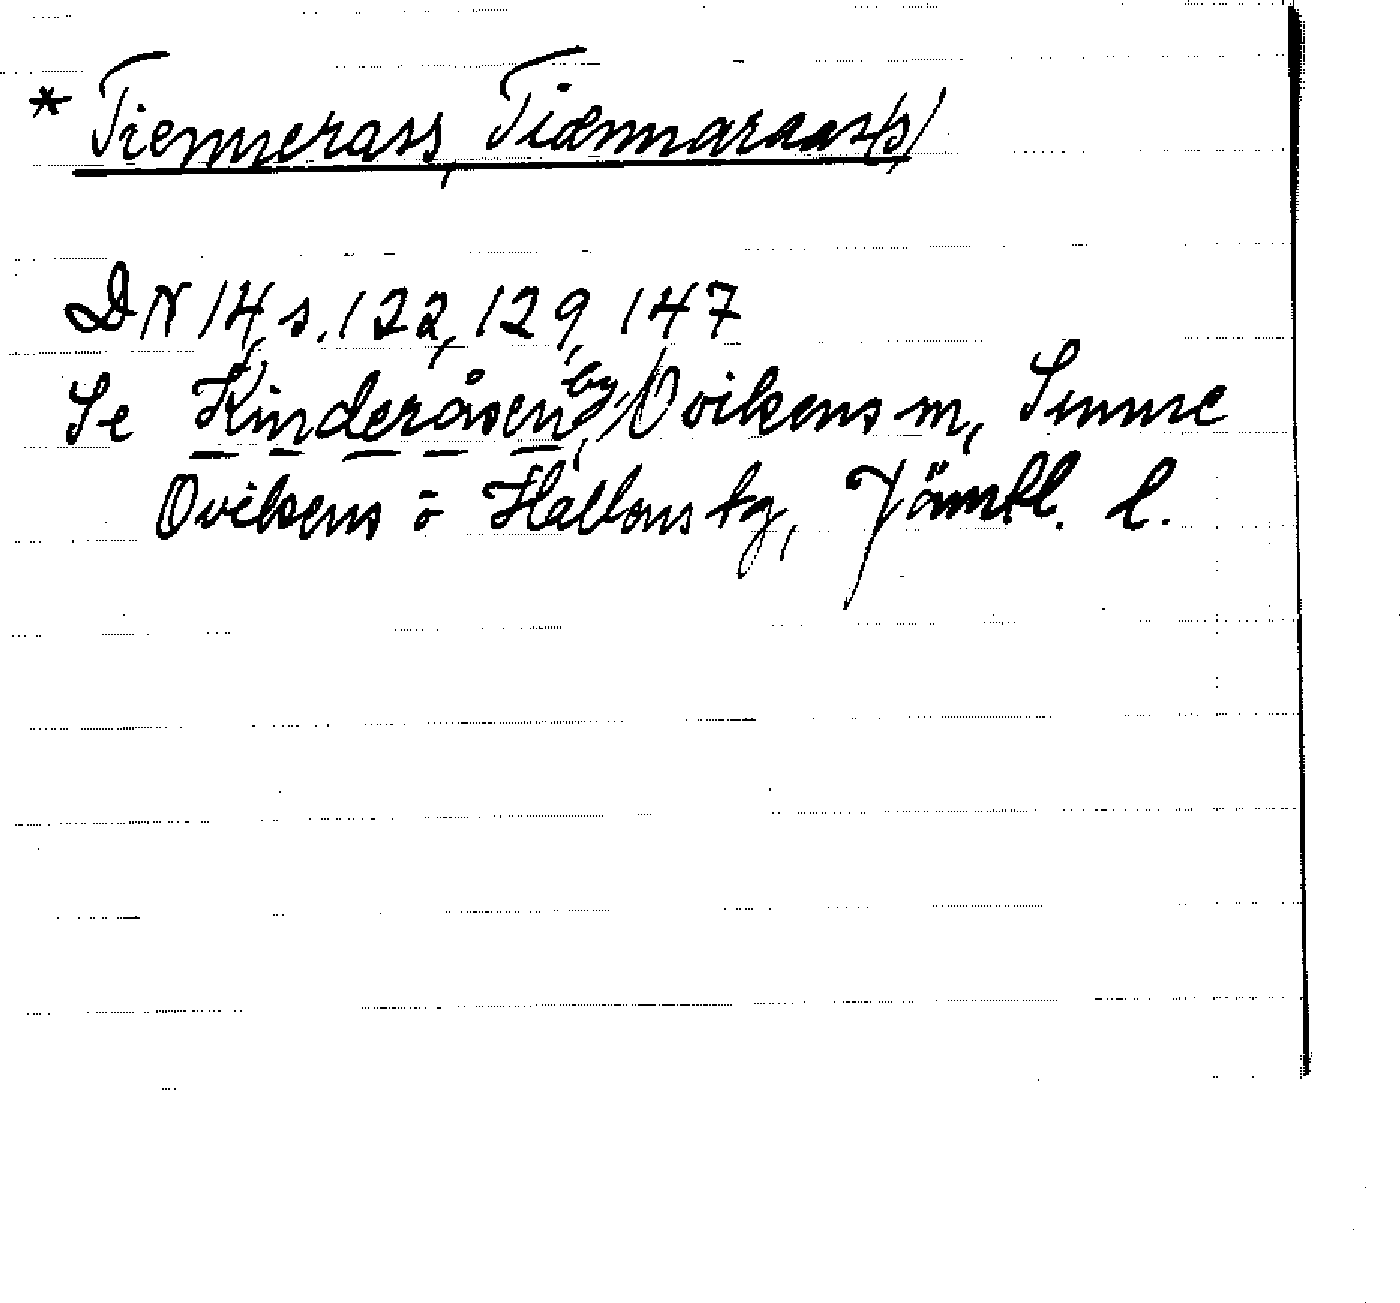 * Tiennerass, Tiænnaraas(s)
DN 14, s. 122, 129, 147
Se Kinderåsen, by, Ovikens sn, Sunne
Ovikens o Hallens tg, Jämtl. l.